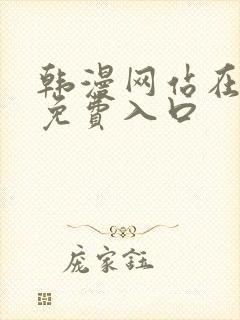 韩漫网佔在
免費入口
庞家鈺